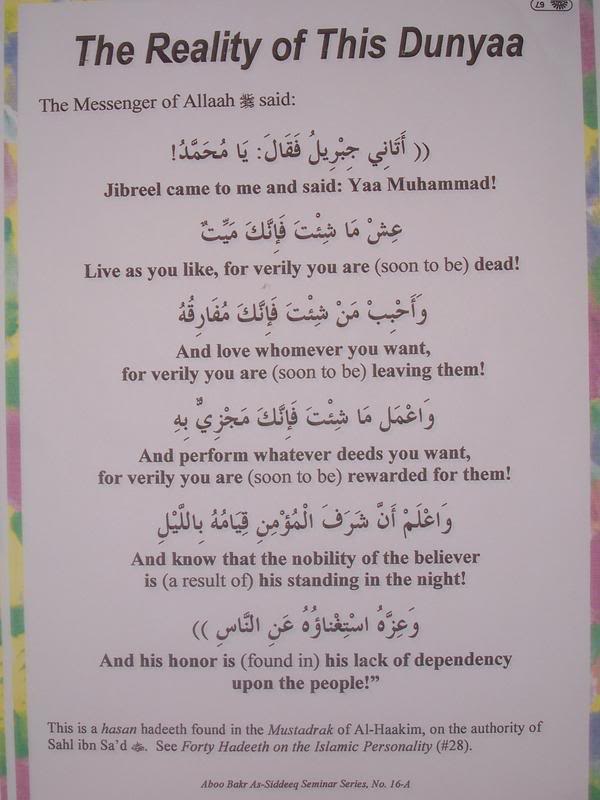 67
The Reality of This Dunyaa
The Messenger of Allaah ﷺ said:
(( أَتَانِي جِبْرِيلُ فَقَالَ: يَا مُحَمَّدُ!
Jibreel came to me and said: Yaa Muhammad!
عِشْ مَا شِئْتَ فَإِنَّكَ مَيِّتٌ
Live as you like, for verily you are (soon to be) dead!
وَأَحْبِبْ مَنْ شِئْتَ فَإِنَّكَ مُفَارِقُهُ
And love whomever you want,
for verily you are (soon to be) leaving them!
وَاعْمَل مَا شِئْتَ فَإِنَّكَ مَجْزِيٌّ بِهِ
And perform whatever deeds you want,
for verily you are (soon to be) rewarded for them!
وَاعْلَمْ أَنَّ شَرَفَ الْمُؤْمِنِ قِيَامُهُ بِاللَّيْلِ
And know that the nobility of the believer
is (a result of) his standing in the night!
وَعِزَّهُ اسْتِغْناؤُهُ عَنِ النَّاسِ ))
And his honor is (found in) his lack of dependency
upon the people!”
This is a hasan hadeeth found in the Mustadrak of Al-Haakim, on the authority of
Sahl ibn Sa’d. See Forty Hadeeth on the Islamic Personality (#28).
Aboo Bakr As-Siddeeq Seminar Series, No. 16-A